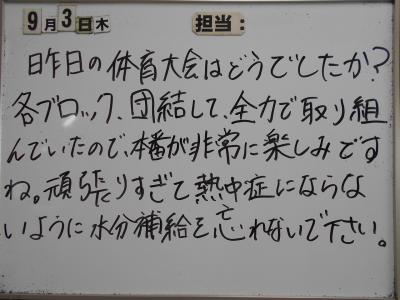 9月3日木 担当:
昨日の体育大会はどうでしたか?
各ブロック、団結して、全力で取り組
んでいたので、本番が非常に楽しみです
ね。頑張りすぎて熱中症にならな
いように水分補給を忘れないで下さい。